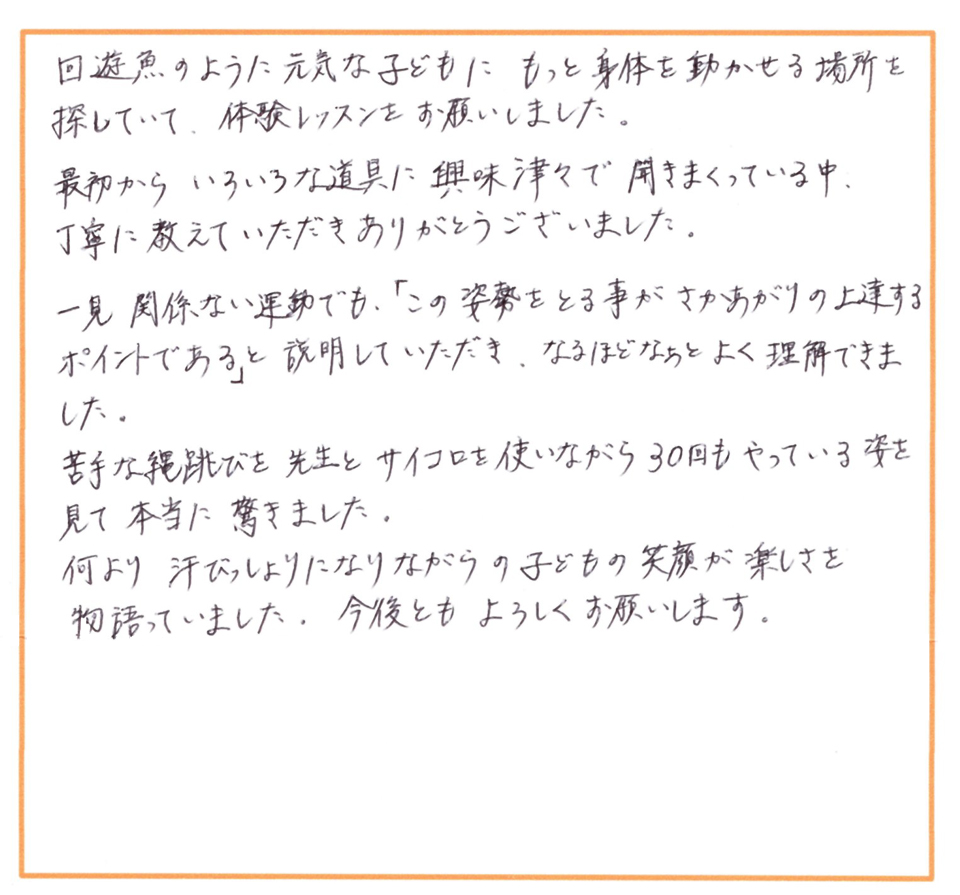 回遊魚のように元気な子どもに もっと身体を動かせる場所を
探していて、体験レッスンをお願いしました。
最初から いろいろな道具に興味津々で 聞きまくっている中、
丁寧に教えていただきありがとうございました。
一見 関係ない運動でも、「この姿勢をとる事が さかあがりの上達する
ポイントである」と 説明していただき、なるほどなぁと よく理解できま
した。
苦手な縄跳びを 先生と サイコロを使いながら 30回も やっている姿を
見て 本当に 驚きました。
何より 汗びっしょりになりながらの子どもの笑顔が楽しさを
物語っていました。今後とも よろしくお願いします。